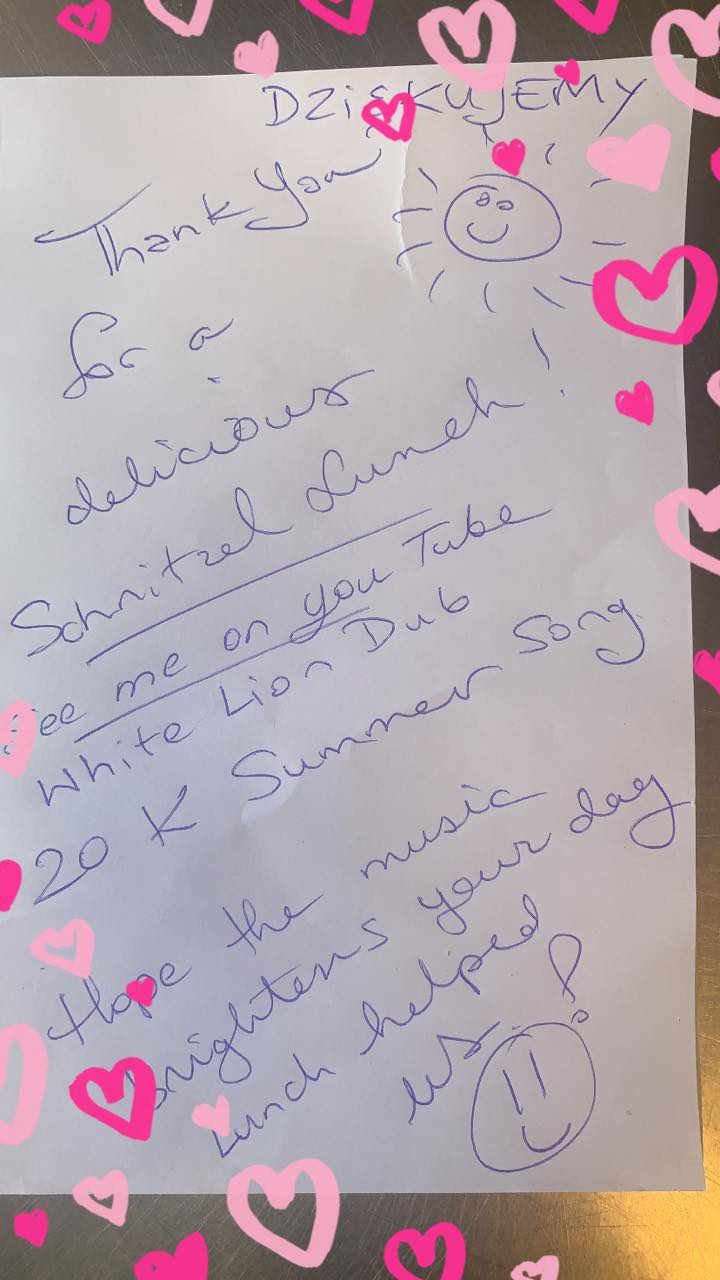 DZIĘKUJEMY
Thank You
for a
delicious
Schnitzel Lunch!
See me on you Tube
White Lion Dub
20 K Summer Song
Hope the music
brightens your day
Lunch helped
us!